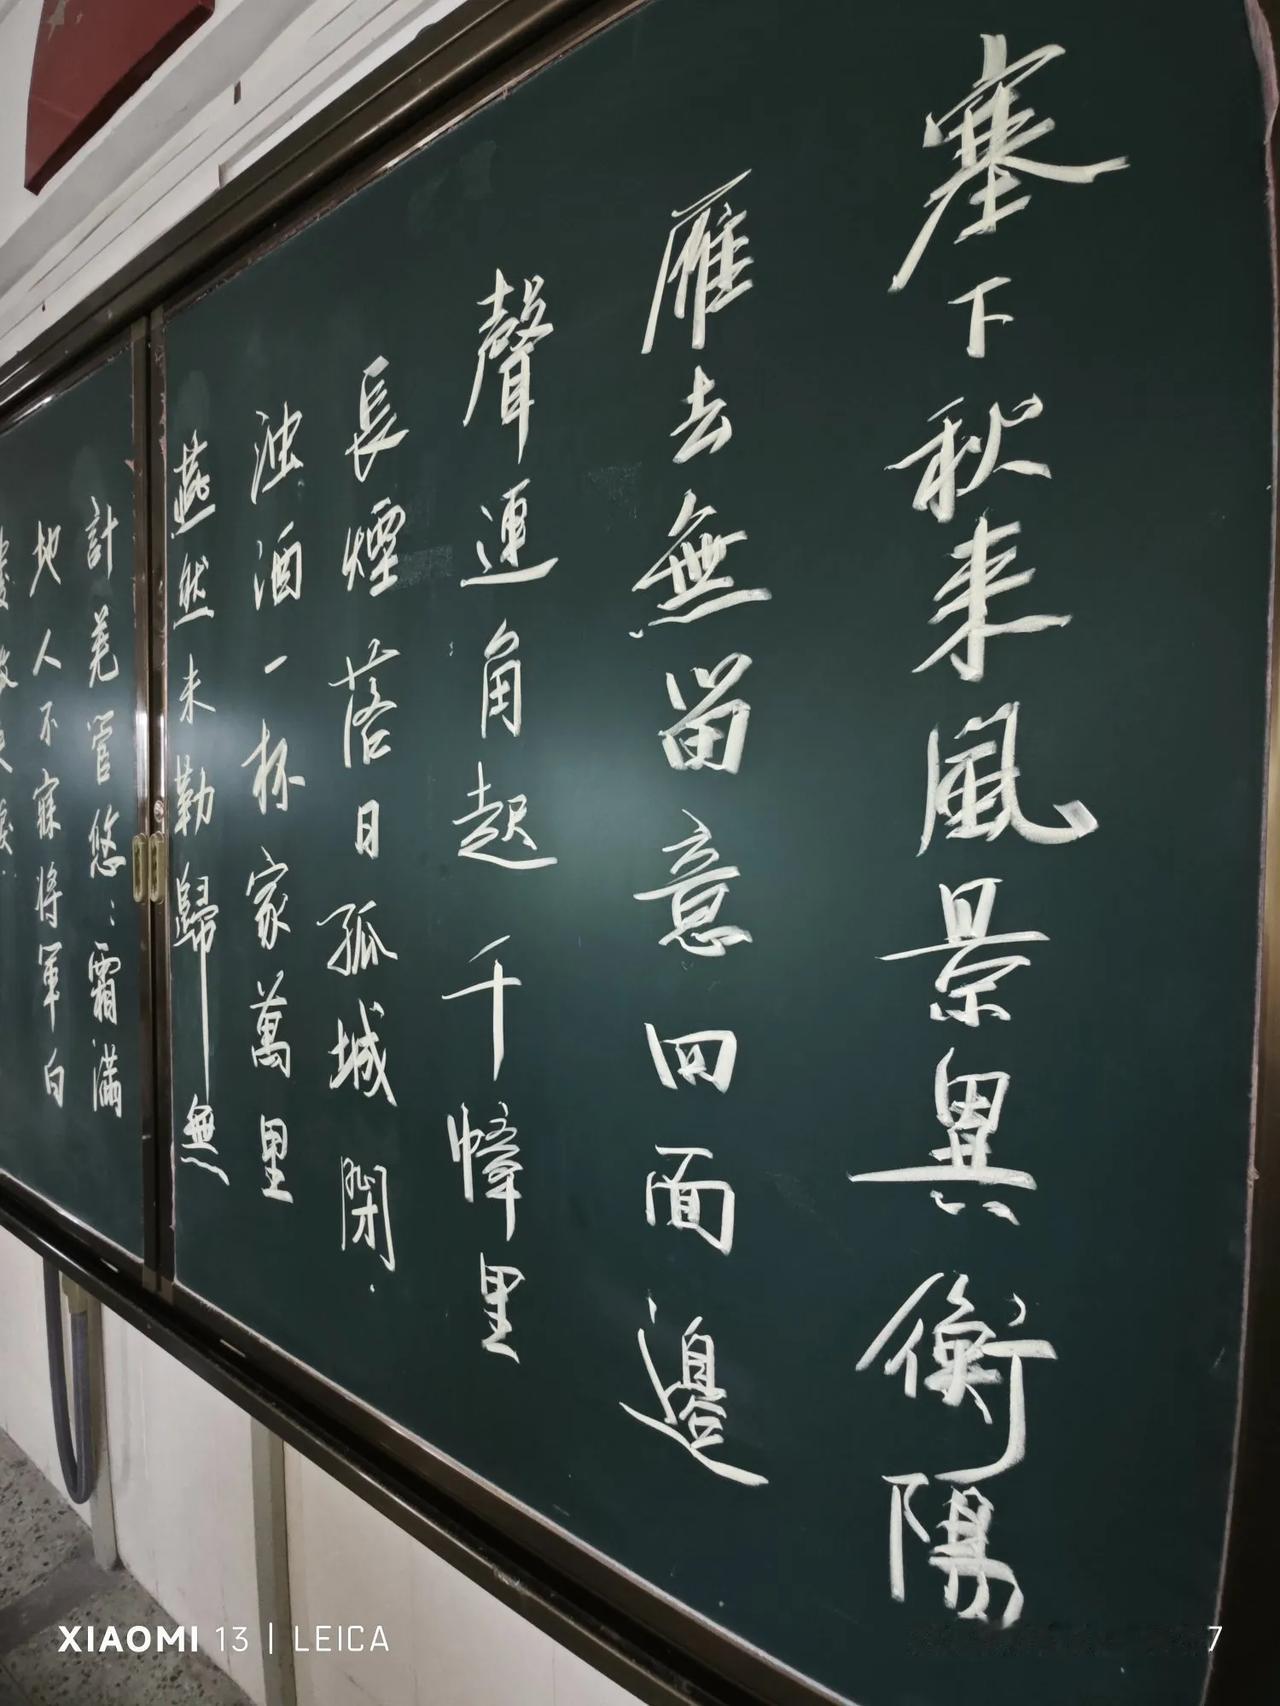 塞下秋来風景異衡陽
雁去無留意四面邉
聲連角起千幛里
長煙落日孤城閉
浊酒一杯家萬里
燕然未勒歸無
計羌管悠:霜滿
地人不寐将軍白
XIAOMI 13 | LEICA
7